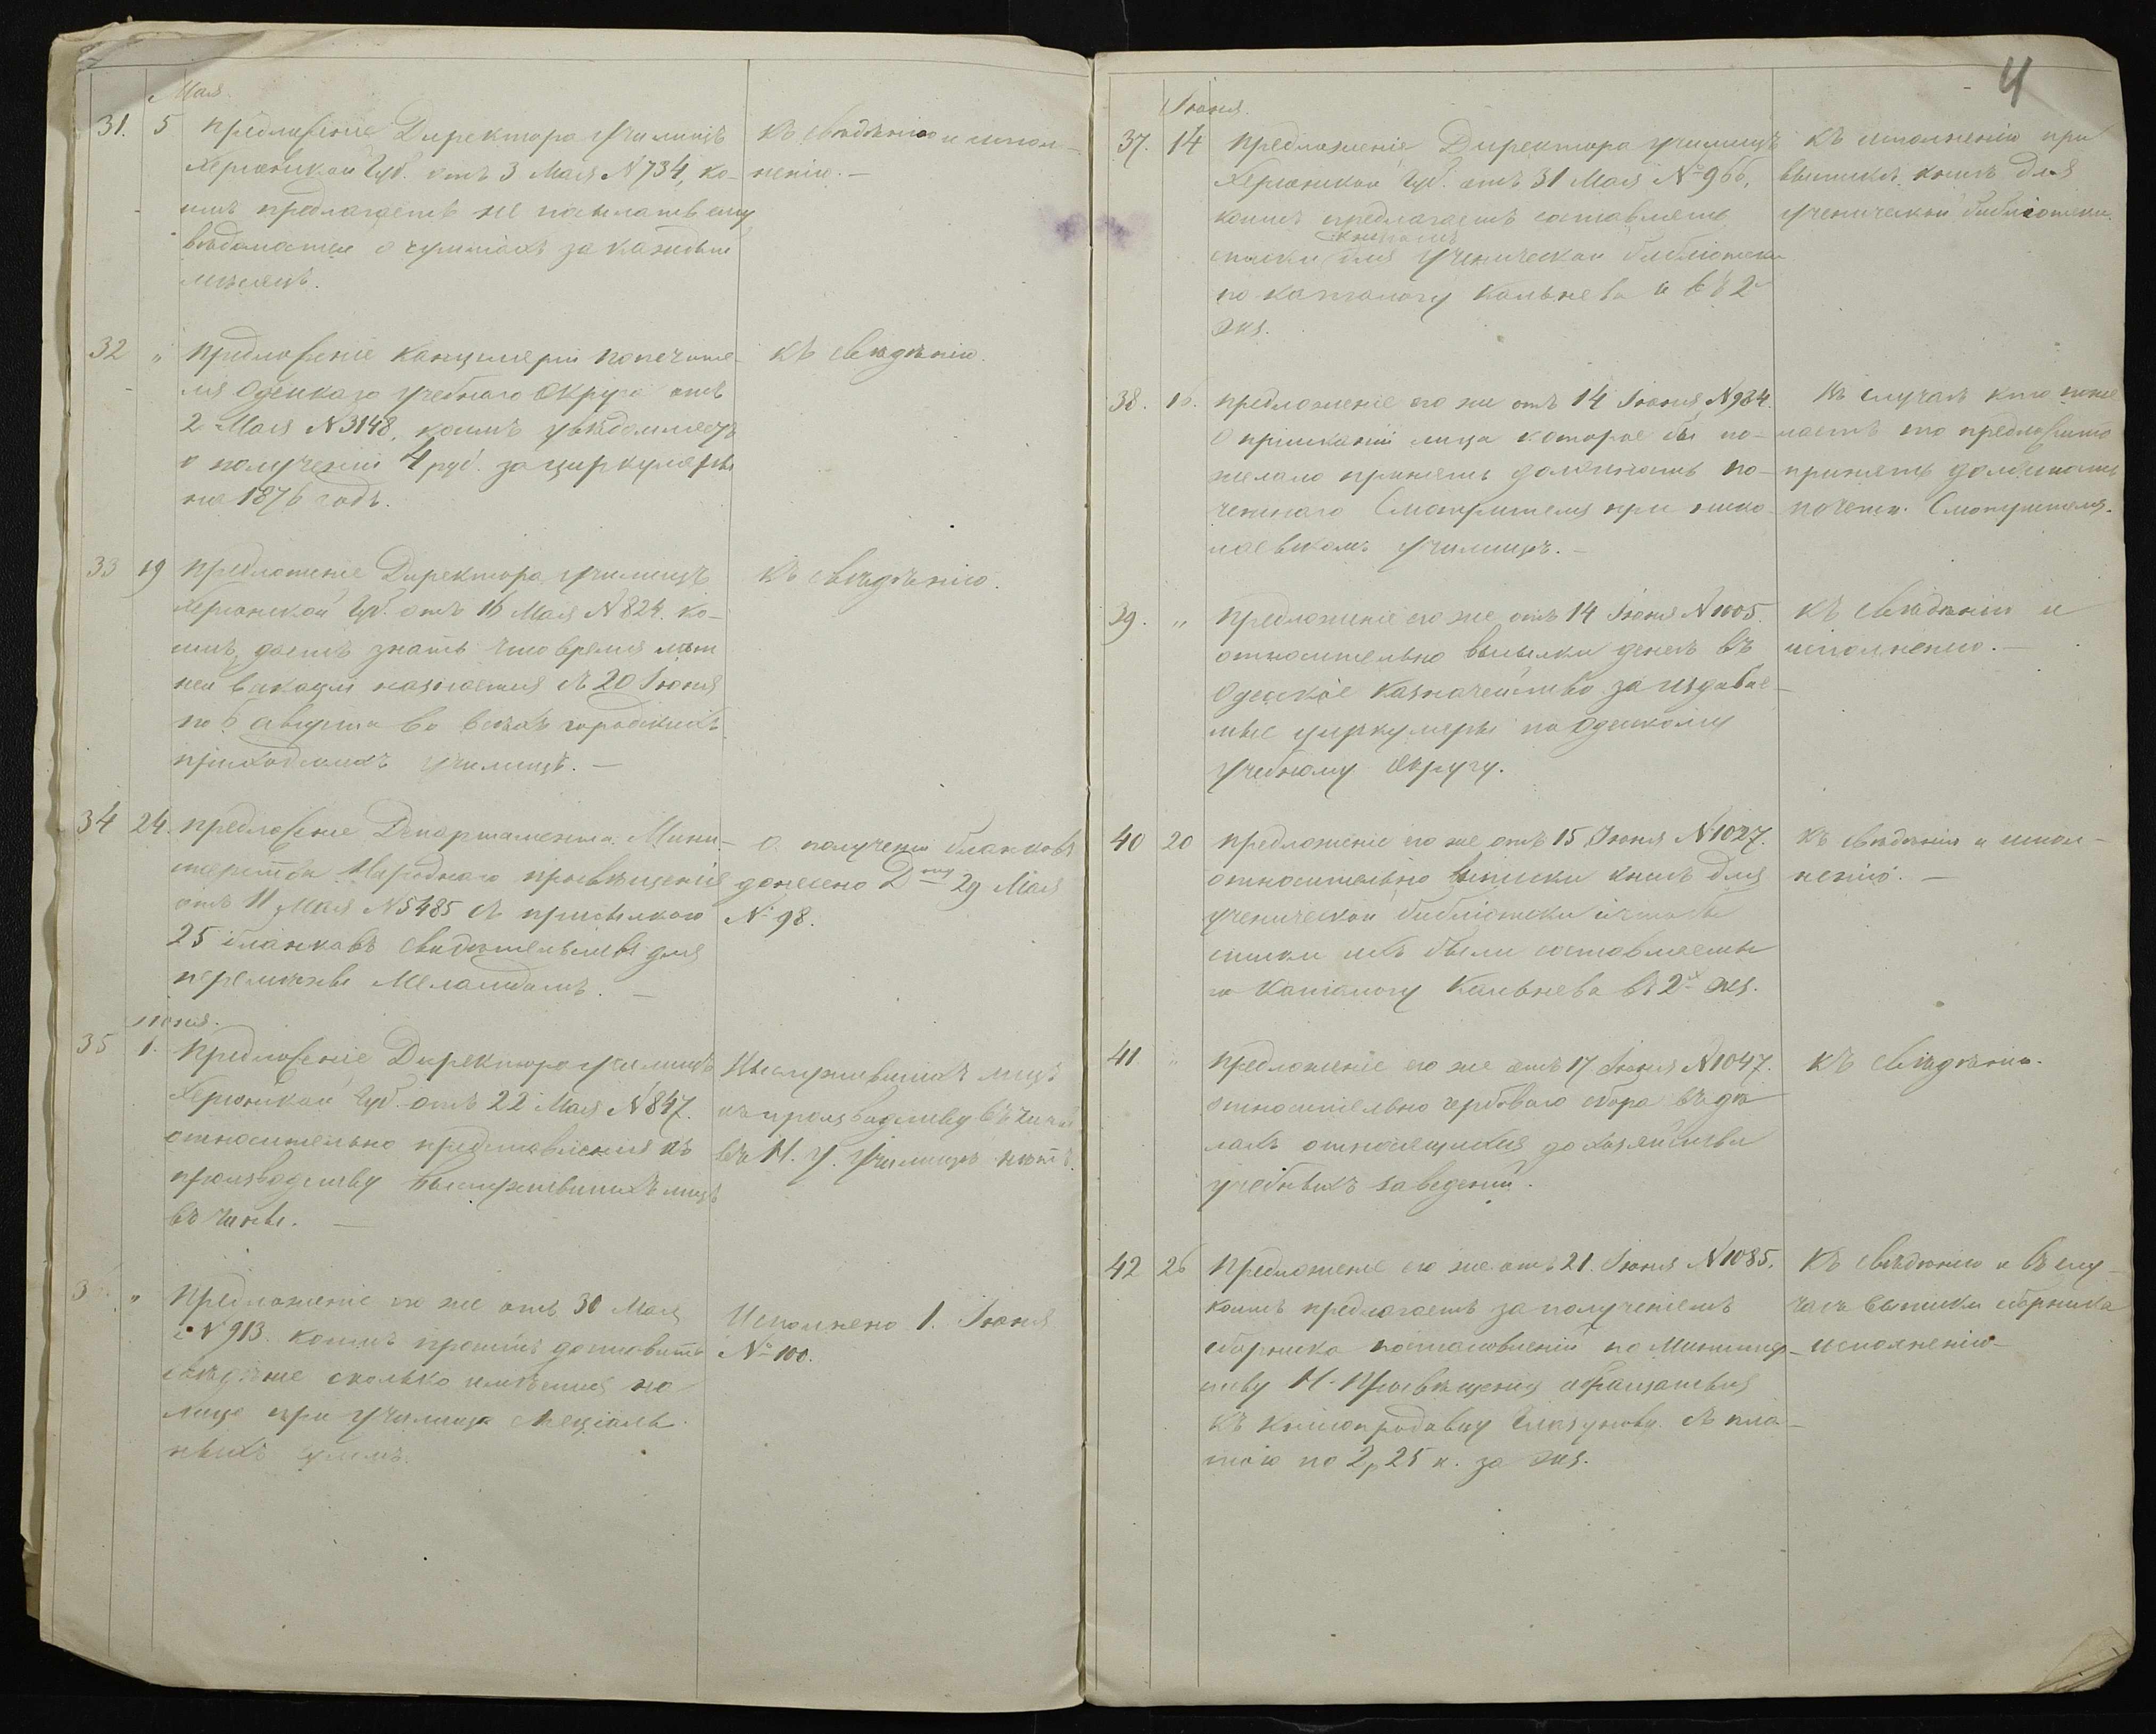 Мая.
31. 5 Предложеніе Директора училищъ
Херсонской Губ. отъ 3 Мая №734, ко-
имъ предлагаетъ не посылать ему
вѣдомостей о суммахъ за каждый
мѣсяцъ.
Къ свѣдѣнію и испол-
ненію. —
32 " Предложеніе Канцеляріи Попечите-
ля Одесскаго Учебнаго Округа отъ
2 Мая №3148, коимъ увѣдомляетъ
о полученіи 4 руб. за циркуляры
на 1876 годъ.
Къ свѣдѣнію.
33 19 Предложеніе Директора училищъ
Херсонской Губ. отъ 16 Мая №824. ко-
имъ даетъ знать что время лѣт
ней вакаціи назначается съ 20 Іюня
по 6 августа во всѣхъ городскихъ
приходскихъ училищъ. —
Къ свѣдѣнію.
34 24. Предложеніе Департамента Мини-
стерства Народнаго просвѣщенія
отъ 11 Мая №5485 съ присылкою
25 бланковъ свидѣтельствъ для
перемѣны Меламдамъ. —
О полученіи бланковъ
донесено Д-ту 29 Мая
№ 98.
Іюня.
35 1. Предложеніе Директора училищъ
Херсонской Губ. отъ 22 Мая №847.
относительно представленія къ
производству выслужившихъ лицъ
въ чины. —
Выслужившихъ лицъ
къ производству въ чины
въ Н. У. Училищѣ нѣтъ.
3 " Предложеніе его же отъ 30 Мая
№913. коимъ проситъ доставить
свѣдѣніе сколько имѣется на
лицо при училищѣ спеціаль-
ныхъ суммъ.
Исполнено 1. Іюня
№ 100.
4
Іюня.
37. 14 Предложеніе Директора училищъ
Херсонской Губ. отъ 31 Мая №966,
коимъ предлагаетъ составлять
книгамъ
списки для ученической библіотеки
по каталогу Кальнева въ 2
экз.
Къ исполненію при
выпискѣ книгъ для
ученической библіотеки.
38. 16. Предложеніе его же отъ 14 Іюня №984.
О пріисканіи лица которое бы по-
желало принять должность по-
четнаго Смотрителя при нико-
лаевскомъ училищѣ. —
Въ случаѣ кто поже
лаетъ то предложить
принять должность
почетн. Смотрителя.
39. " Предложеніе его же отъ 14 Іюня №1005.
относительно высылки денегъ въ
Одесское Казначейство за издавае-
мые циркуляры по Одесскому
учебному Округу.
Къ свѣдѣнію и
исполненію. —
40 20 Предложеніе его же отъ 15 Іюня №1027.
относительно выписки книгъ для
ученической библіотеки и чтобы
списки ихъ были составляемы
по Каталогу Кальнева въ 2-хъ экз.
Къ свѣдѣнію и испол-
ненію. —
41 " Предложеніе его же отъ 17 Іюня №1047.
относительно гербоваго сбора въ дѣ
лахъ относящихся до хозяйства
учебныхъ заведеній.
Къ свѣдѣнію.
42 26 Предложеніе его же отъ 21. Іюня №1085.
коимъ предлагаетъ за полученіемъ
сборника постановленій по Министер-
ству Н. Просвѣщенія обращаться
къ книгопродавцу Глазунову. съ пла-
тою по 2 р 25 к. за экз.
Къ свѣдѣнію и въ слу-
чаѣ выписки сборника
исполненію